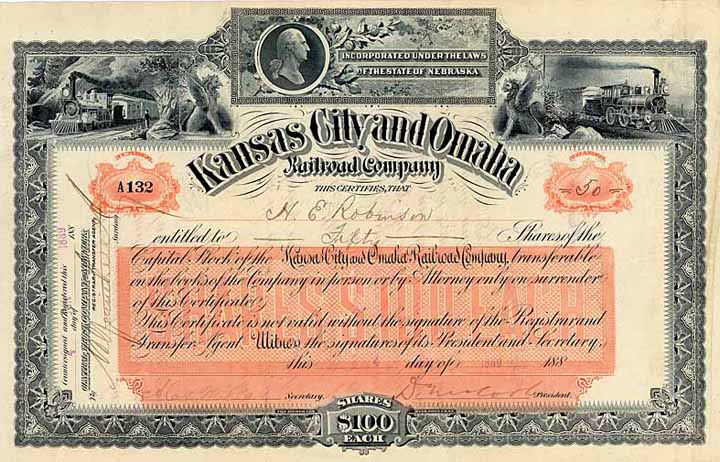 INCORPORATED UNDER THE LAWS
OF THE STATE OF NEBRASKA
Kansas City and Omaha
Railroad Company
THIS CERTIFIES, THAT
NUMBER
A 132
SHARES
50
H. E. Robinson
entitled to Fifty Shares of the
Capital Stock of the Kansas City and Omaha Railroad Company, transferable
on the books of the Company in person or by Attorney only on surrender
of this Certificate.
This Certificate is not valid without the signature of the Registrar and
Transfer Agent. Witness the signatures of its President and Secretary,
this day of 1889 188
Secretary.
President.
SHARES
$100
EACH
Countersigned and Registered this
day of 1889 188
REGISTRAR & TRANSFER AGENT
By
Secretary